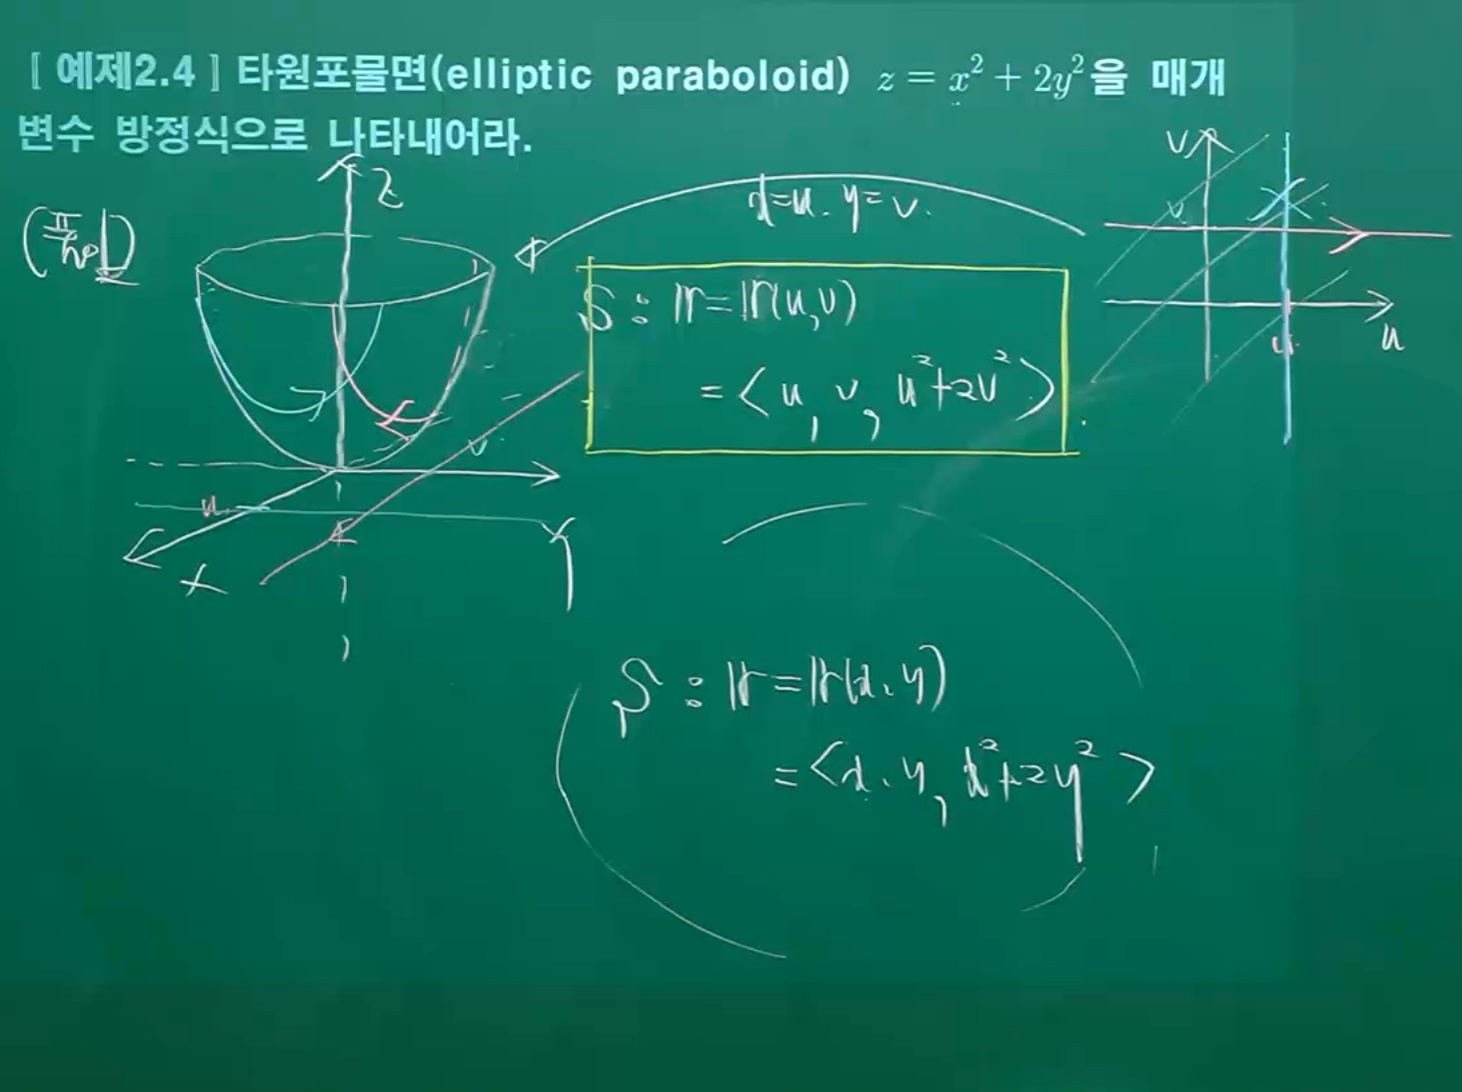 [ 예제2.4 ] 타원포물면(elliptic paraboloid) z = x² + 2y²을 매개
변수 방정식으로 나타내어라.
(풀이)
z
x=u. y=v.
v
v
u
u
S : r = r(u,v)
= < u, v, u²+2v² >
v
u
x
y
S : r = r(x, y)
= < x, y, x²+2y² >